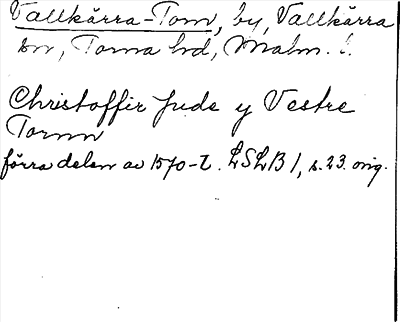 Vallkärra-Torn, by, Vallkärra
sn, Torna hd, Malm. l.
Christoffir Jude y Vestre
Tornn
förra delen av 1570-t. LSLB 1, s. 23. orig.